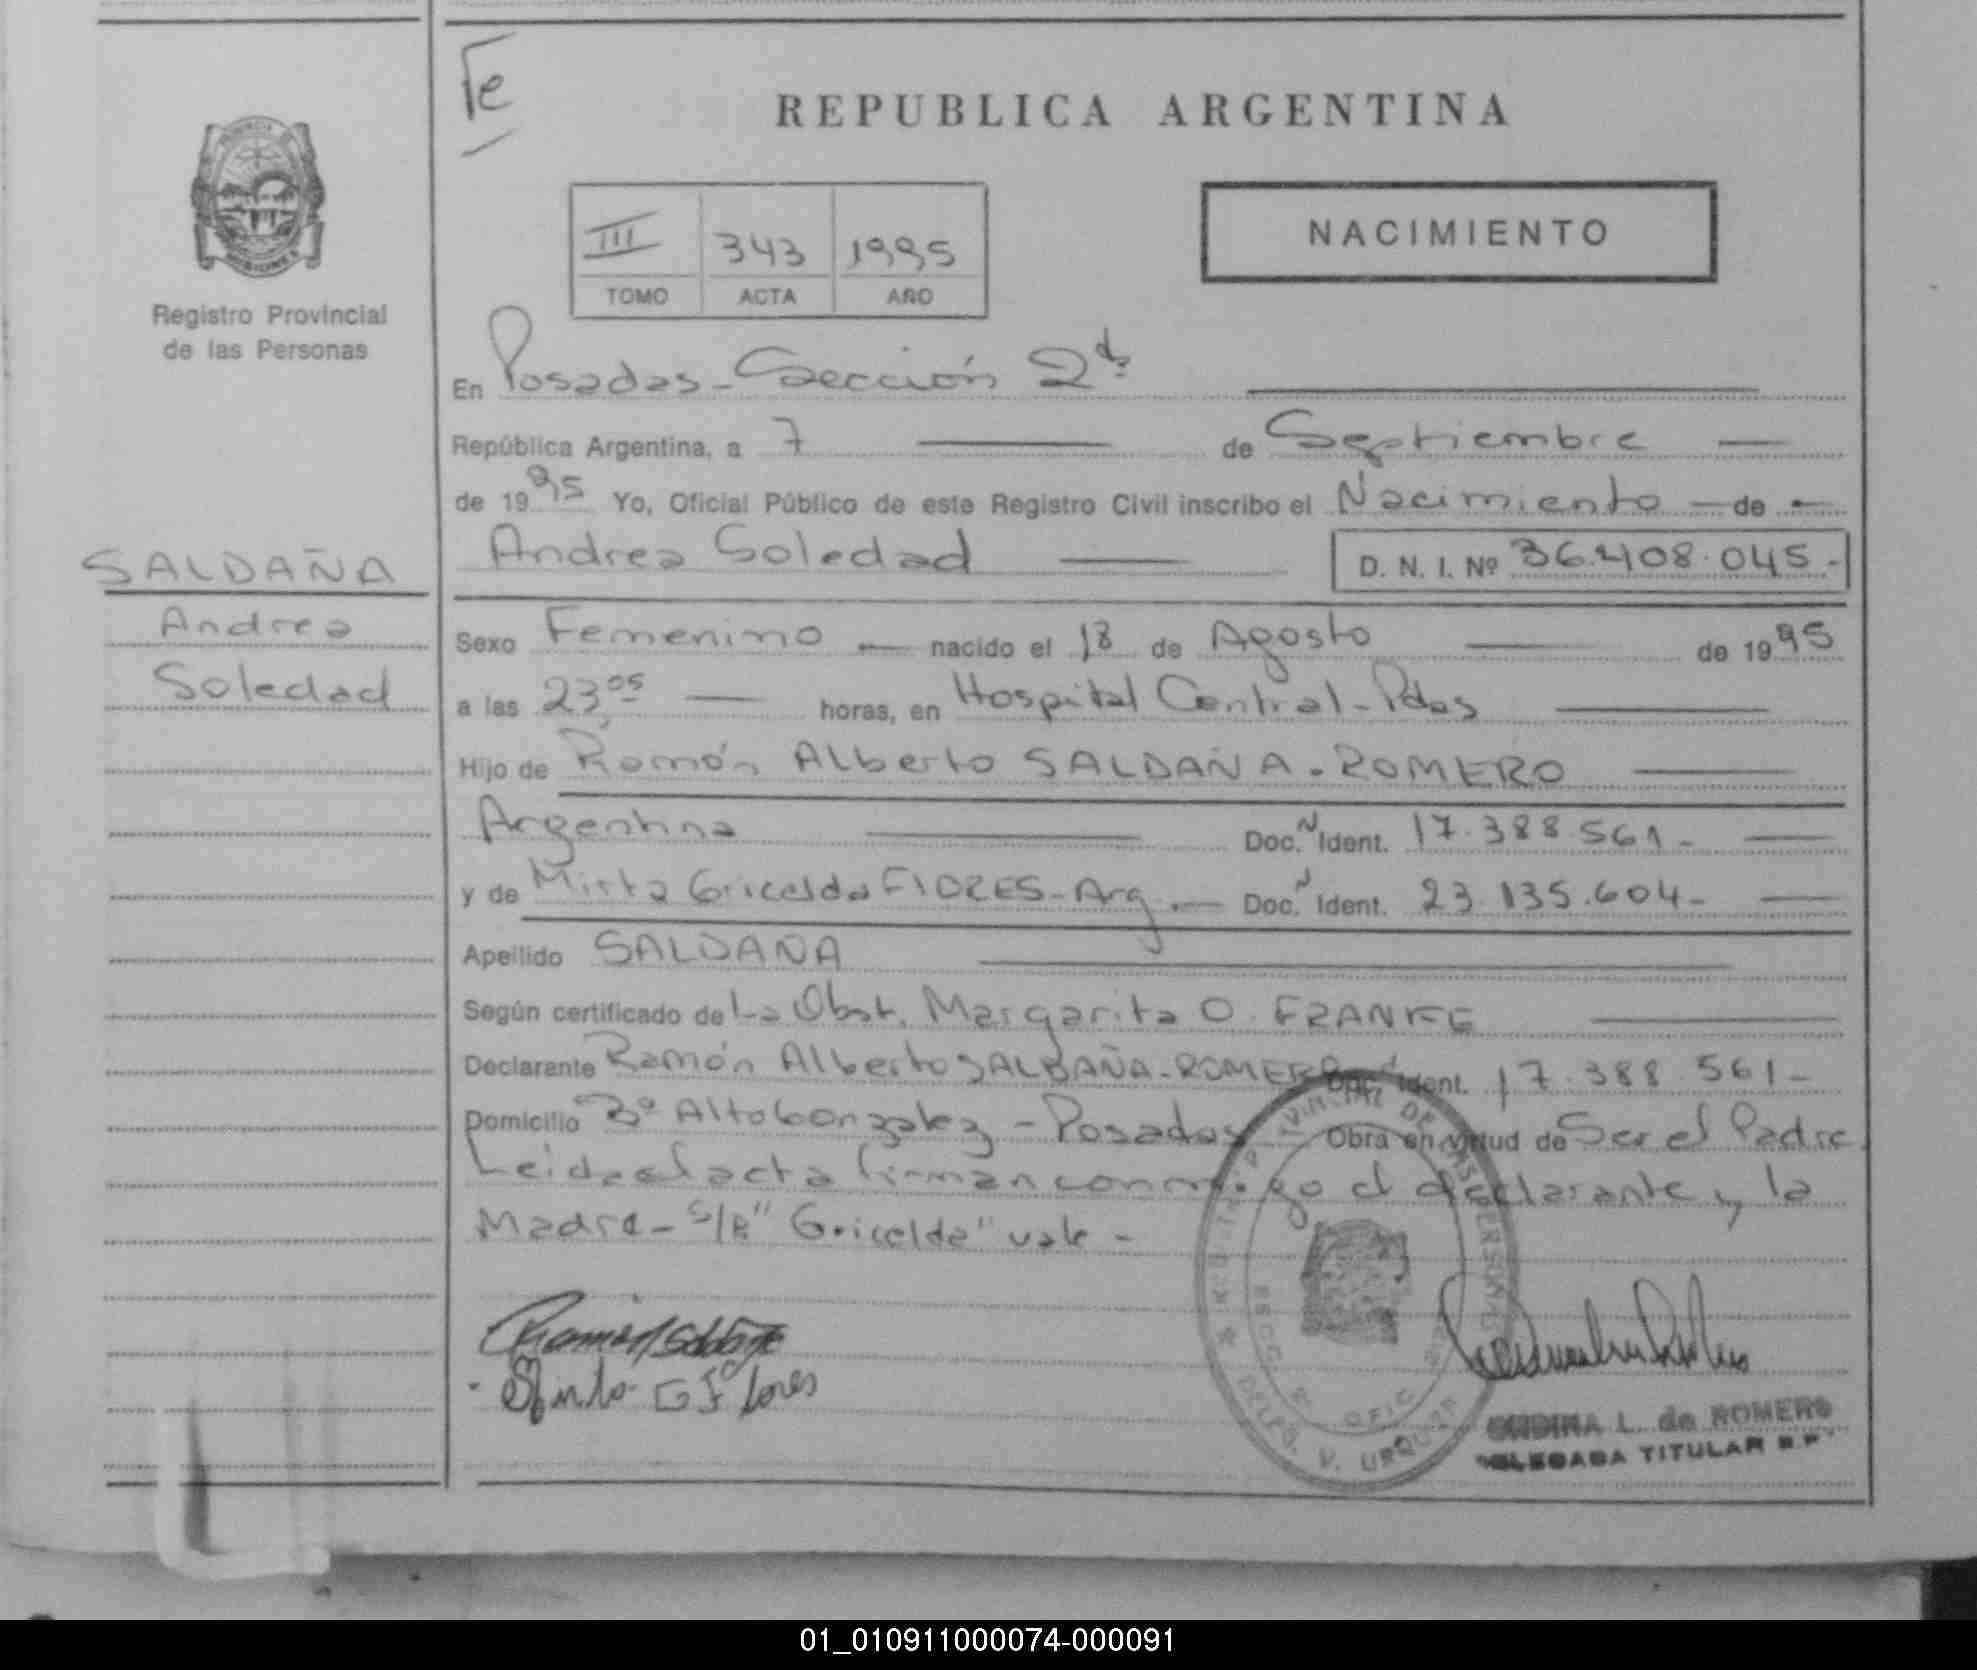 Fe
REPUBLICA ARGENTINA
NACIMIENTO
III 343 1995
TOMO ACTA AÑO
Registro Provincial
de las Personas
En Posadas - Sección 2da
República Argentina, a 7 de Septiembre
de 1995 Yo, Oficial Público de este Registro Civil inscribo el Nacimiento de
Andrea Soledad D. N. I. Nº 36.408.045.-
SALDAÑA
Andrea
Soledad
Sexo Femenino nacido el 18 de Agosto de 1995
a las 23,05 horas, en Hospital Central - Pdas
Hijo de Ramón Alberto SALDAÑA - ROMERO
Argentina Doc. N Ident. 17.388.561-
y de Mirta Gricelda FLORES - Arg. Doc. N Ident. 23.135.604-
Apellido SALDAÑA
Según certificado de La Obst. Margarita O. FRANKE
Declarante Ramón Alberto SALDAÑA - ROMERO Doc. Ident. 17.388.561-
Domicilio Bº Alto Gonzalez - Posadas - Obra en virtud de Ser el Padre
Leida el acta firman conmigo el declarante y la
Madre - S/R "Gricelda" vale -
G Flores
DELEG. V. URQUIZA
L. de ROMERO
DELEGADA TITULAR R.P.
01_010911000074-000091